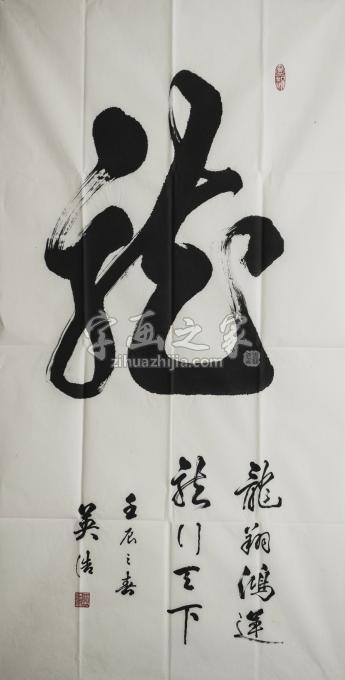 龍
龍翔鴻運
龍行天下
壬辰之春
英浩
字画之家
zihuazhijia.com